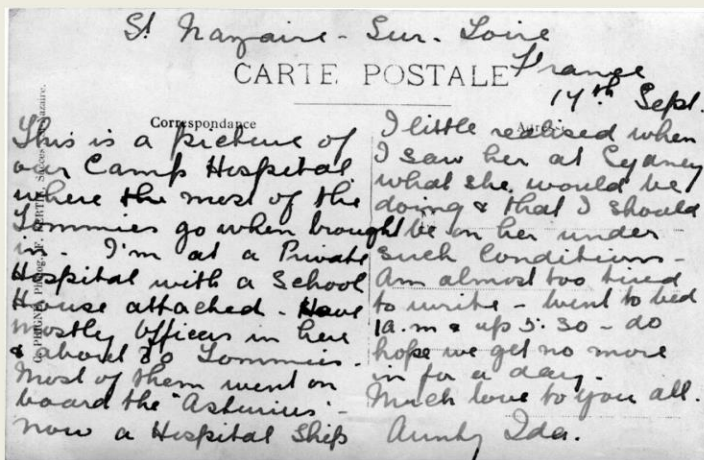 St Nazaire - Sur - Loire
France
CARTE POSTALE
17th Sept.
Correspondance
This is a picture of
our Camp Hospital
where the most of the
Tommies go when brought
in. I'm at a Private
Hospital with a School
House attached - Have
mostly Officers in here
& about 20 Tommies.
Most of them went on
board the "Asturius" -
now a Hospital Ship
I little realised when
I saw her at Sydney
what she would be
doing & that I should
be on her under
such Conditions -
Am almost too tired
to write - went to bed
1 a.m & up 5.30 - do
hope we get no more
in for a day.
Much love to you all.
Aunty Ida.